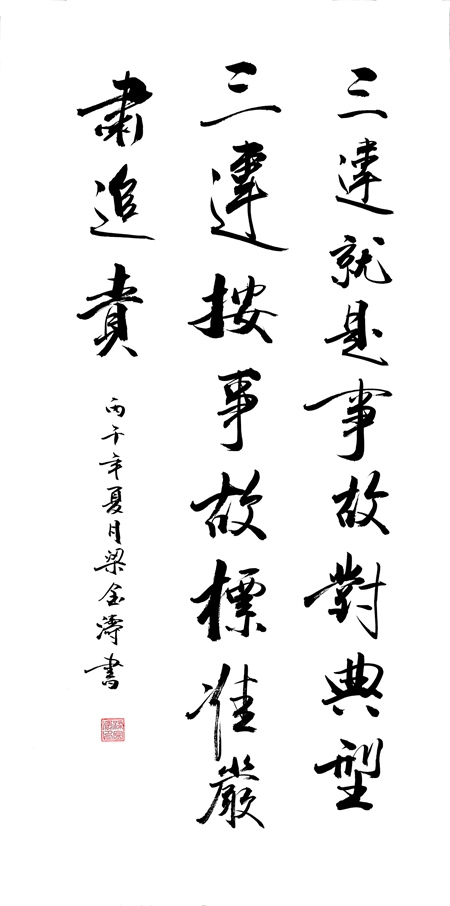 三違就是事故對典型
三違按事故標准嚴
肅追責
丙午年夏月梁金濤書